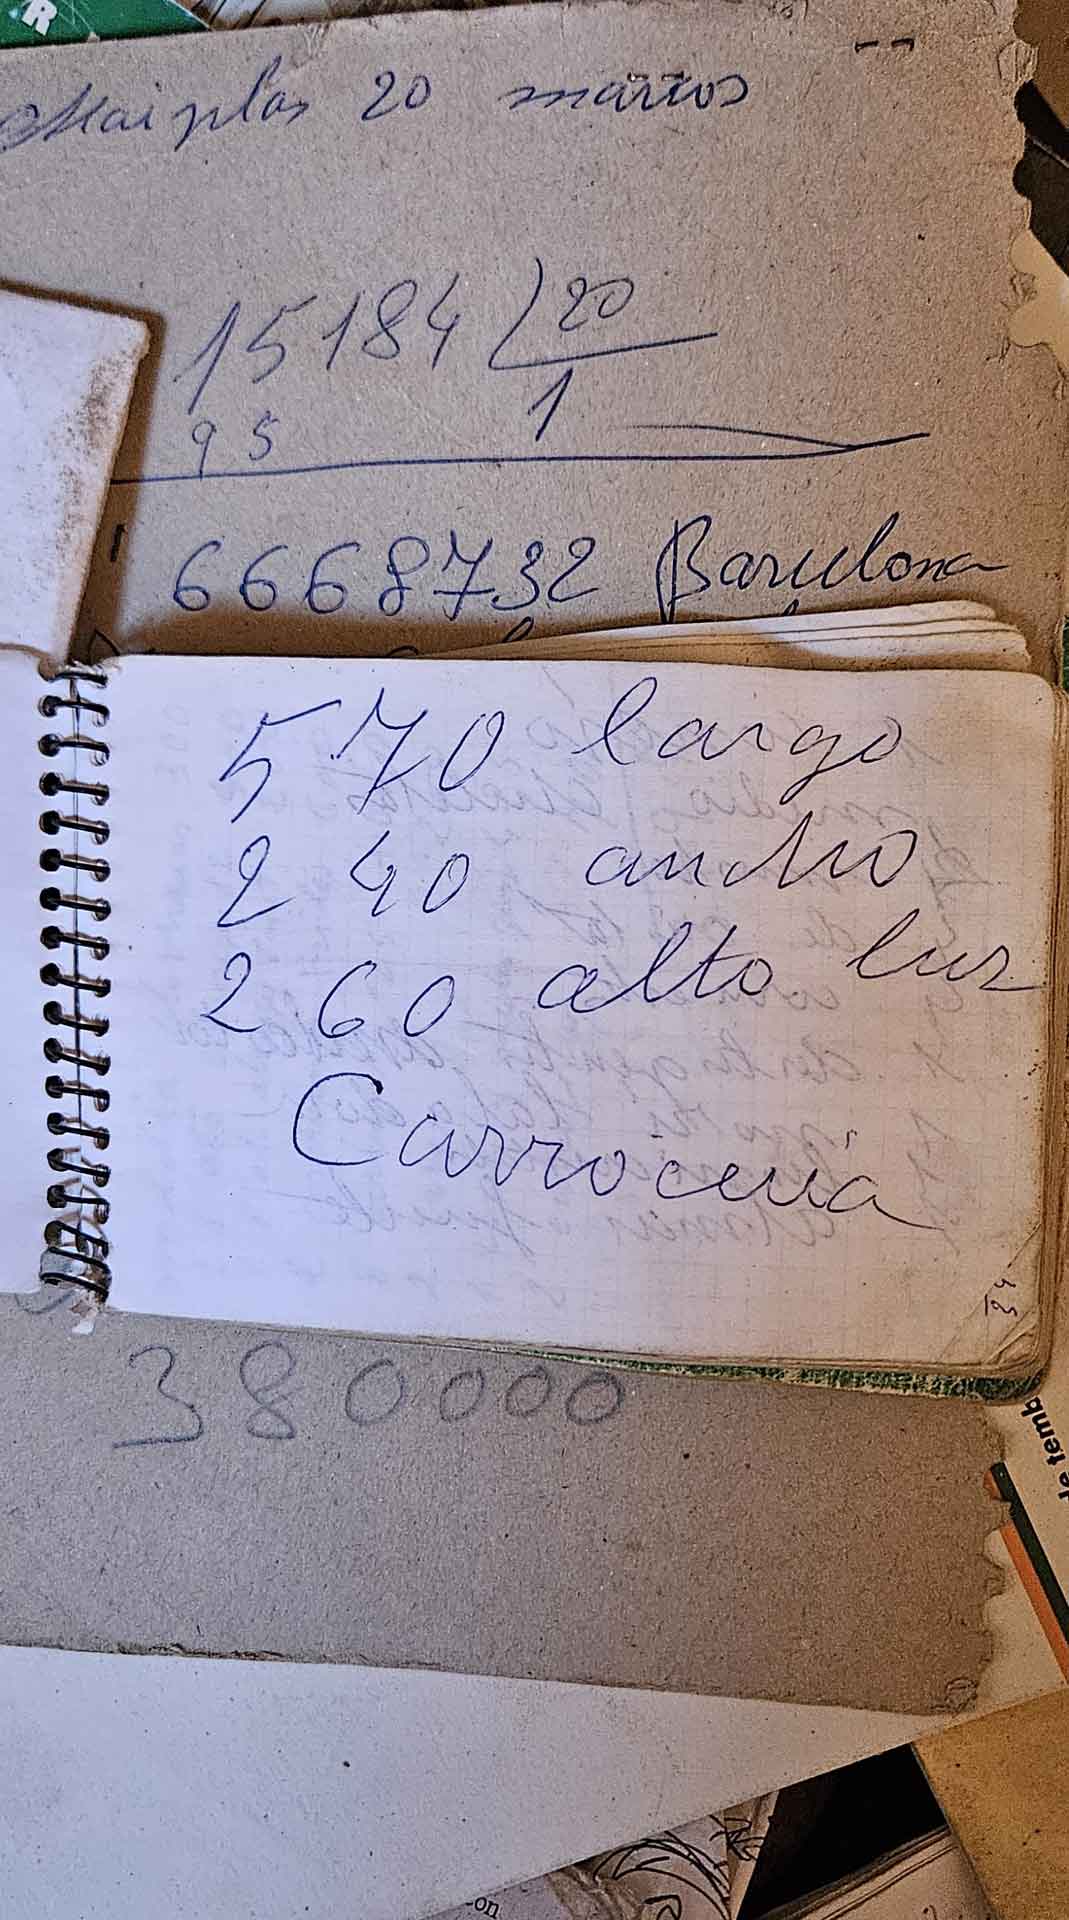 R
20 marcos
15184 20
95 1
6668732 Barcelona
570 largo
240 ancho
260 alto luz
Carrocería
380000
de temb
on